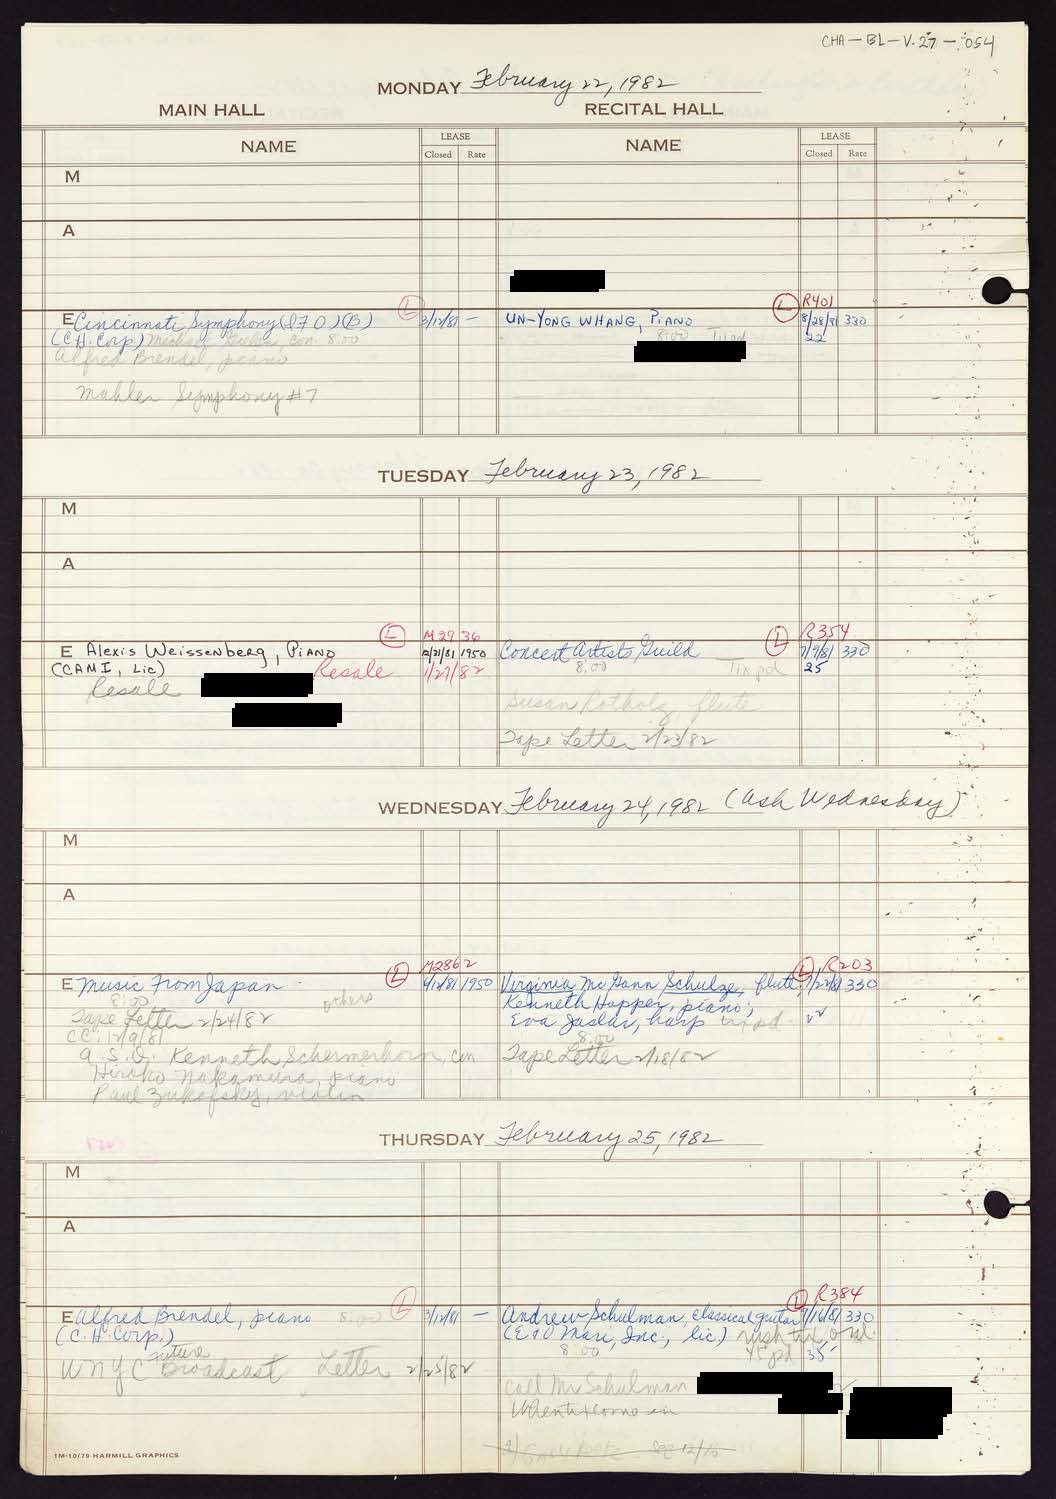 CHA-BL-V.27-054
MONDAY February 22, 1982
MAIN HALL RECITAL HALL
NAME LEASE Closed Rate NAME LEASE Closed Rate
M
A
L L R401
E Cincinnati Symphony (870)(6) 3/12/81 - UN-YONG WHANG, PIANO 8/28/81 330
(C.H. Corp) Michael Gielen, con. 8:00 8:00 Tix pd 22
Alfred Brendel, piano
Mahler Symphony #7
TUESDAY February 23, 1982
M
A
L M2936 L R354
E Alexis Weissenberg, PIANO 12/21/81 1950 Concert Artists Guild 7/9/81 330
(CAMI, Lic) Resale 1/27/82 8:00 Tix pd 25
Resale
Susan Rotholz, flute
Tape Letter 2/23/82
WEDNESDAY February 24, 1982 (Ash Wednesday)
M
A
L M2862 L R203
E Music From Japan 1950 Virginia McGann Schulze, flute, 330
8:00 others Kenneth Hopper, piano;
Tape Letter 2/24/82 Eva Jaslar, harp tix pd.
CC: 12/9/81 8:00
A.S.O. Kenneth Schermerhorn, con Tape Letter 2/18/82
Hiroko Nakamura, piano
Paul Zukofsky, violin
THURSDAY February 25, 1982
M
A
L L R384
E Alfred Brendel, piano 8:00 3/12/81 - Andrew Schulman, classical guitar 9/16/81 330
(C.H. Corp.) (E & O Mari, Inc., lic)
8:00 45 pd 35
future
WNYC Broadcast Letter 2/25/82
call Mr Schulman
When tix come in
See 12/15
1M-10/79 HARMILL GRAPHICS